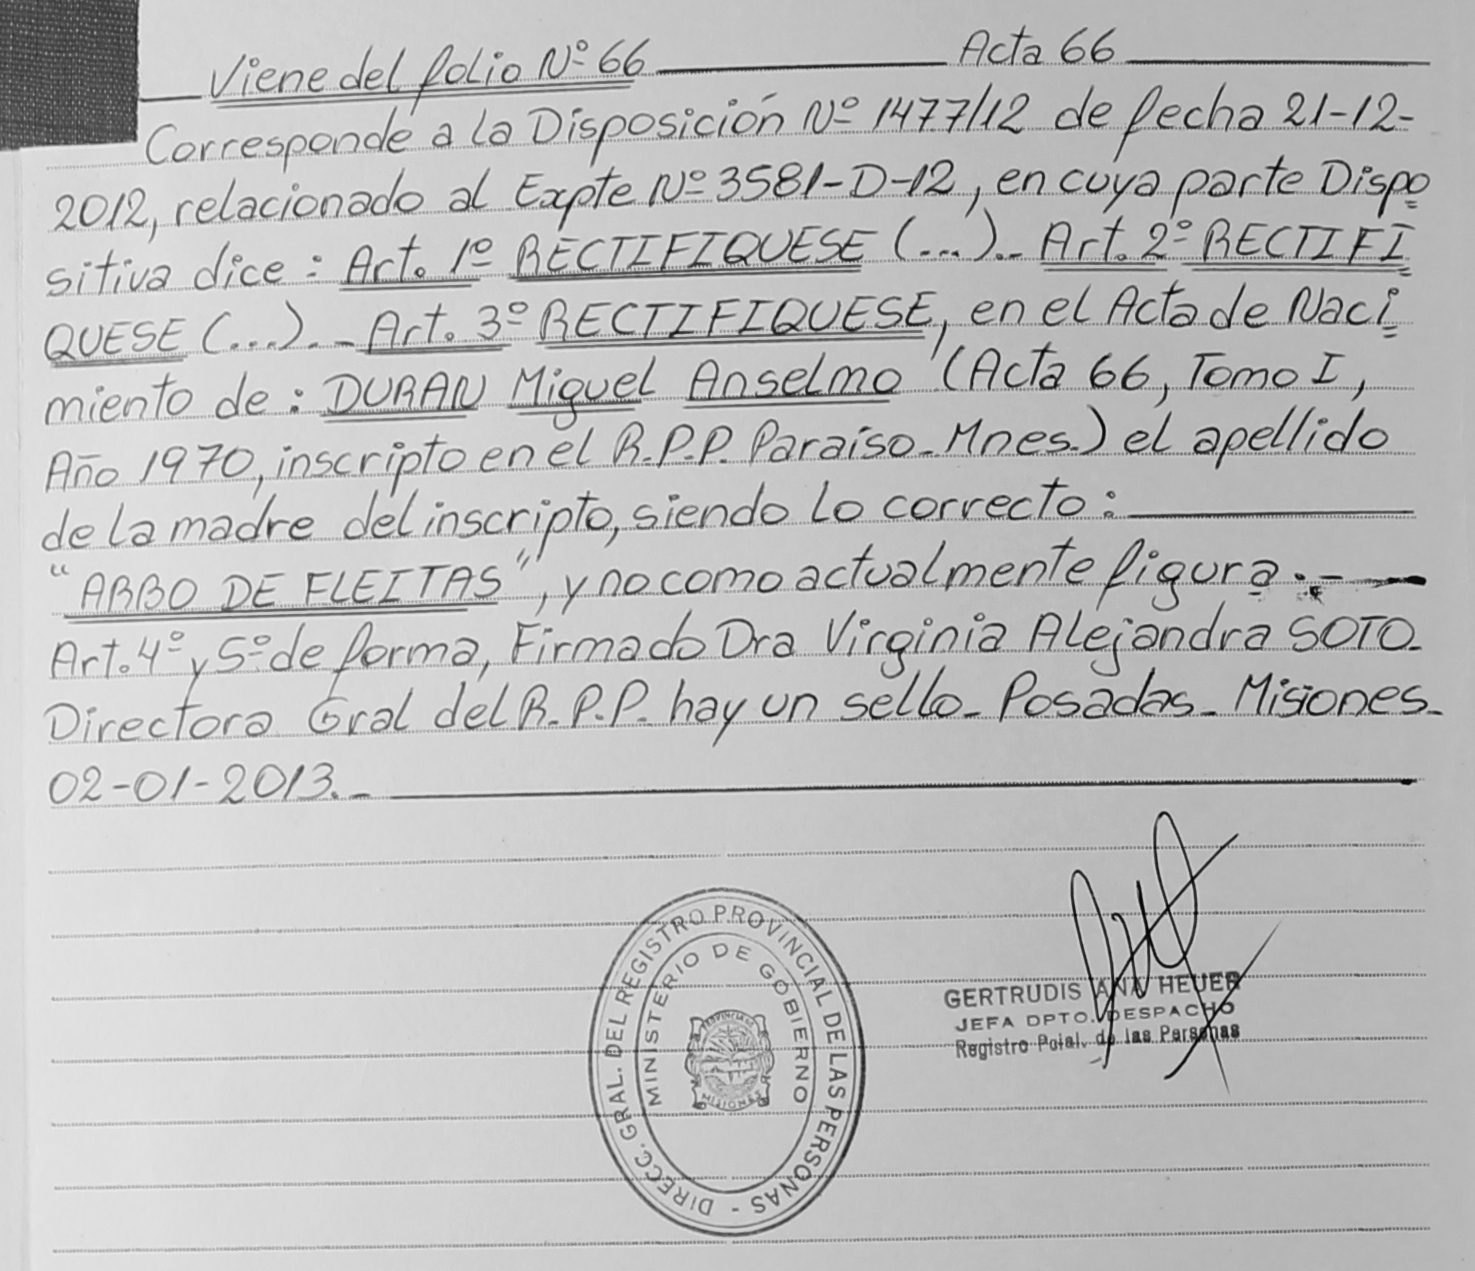 Viene del folio Nº 66 Acta 66
Corresponde a la Disposición Nº 1477/12 de fecha 21-12-
2012, relacionado al Expte Nº 3581-D-12, en cuya parte Dispo
sitiva dice: Art. 1º RECTIFIQUESE (...).- Art. 2º RECTIFI
QUESE (...).- Art. 3º RECTIFIQUESE, en el Acta de Naci
miento de: DURAN Miguel Anselmo (Acta 66, Tomo I,
Año 1970, inscripto en el R.P.P. Paraíso-Mnes.) el apellido
de la madre del inscripto, siendo lo correcto:
"ARBO DE FLEITAS", y no como actualmente figura.-
Art. 4º y 5º de forma, Firmado Dra Virginia Alejandra SOTO-
Directora Gral del R.P.P. hay un sello- Posadas- Misiones-
02-01-2013.-
DIRECC. GRAL. DEL REGISTRO PROVINCIAL DE LAS PERSONAS -
MINISTERIO DE GOBIERNO
PROVINCIA DE
MISIONES
GERTRUDIS ANA HEUER
JEFA DPTO. DESPACHO
Registro Pcial. de las Personas